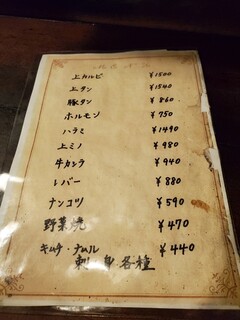 上カルビ ¥1500
上タン ¥1540
豚タン ¥860
ホルモン ¥750
ハラミ ¥1490
上ミノ ¥980
牛カシラ ¥940
レバー ¥880
ナンコツ ¥590
野菜焼 ¥470
キムチ・ナムル ¥440
刺し身各種